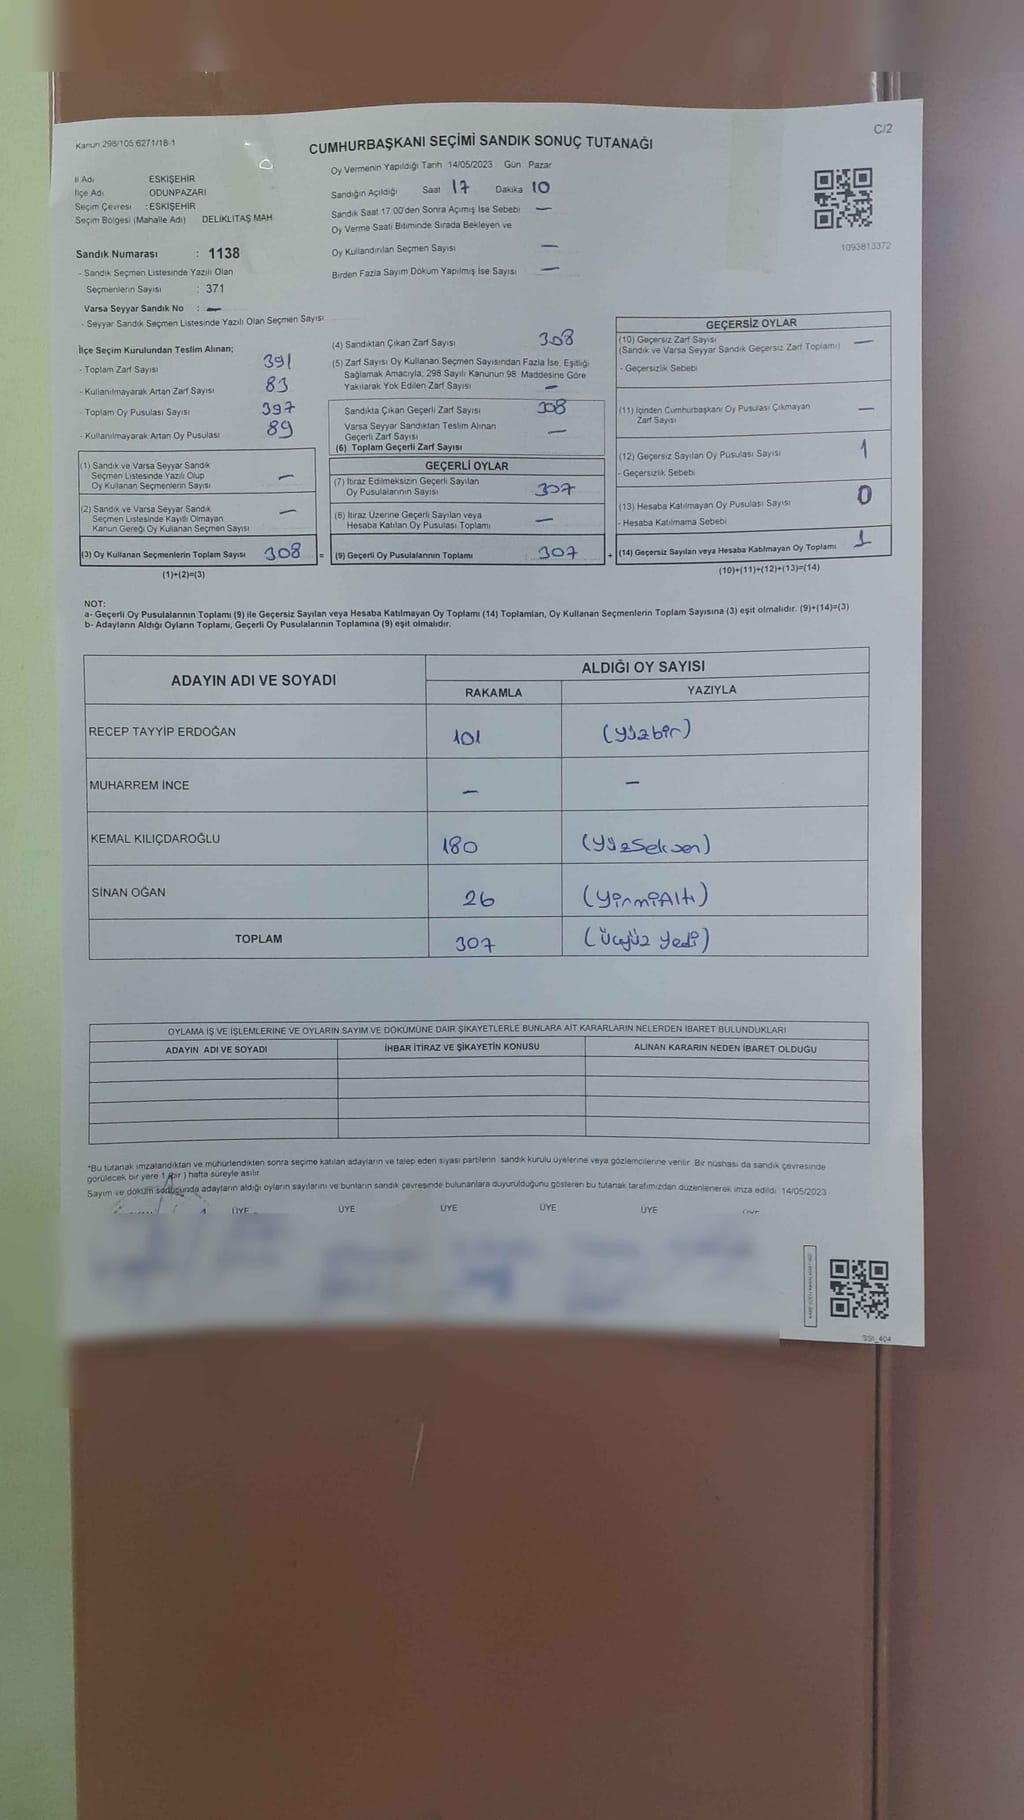 C/2
Kanun 298/105 6271/18-1
CUMHURBAŞKANI SEÇİMİ SANDIK SONUÇ TUTANAĞI
Oy Vermenin Yapıldığı Tarih 14/05/2023 Gün Pazar
İl Adı ESKİŞEHİR
İlçe Adı ODUNPAZARI
Seçim Çevresi : ESKİŞEHİR
Seçim Bölgesi (Mahalle Adı) DELİKLİTAŞ MAH
Sandığın Açıldığı Saat 17 Dakika 10
Sandık Saat 17 00'den Sonra Açımış İse Sebebi —
Oy Verme Saati Bitiminde Sırada Bekleyen ve
Oy Kullandırılan Seçmen Sayısı —
Birden Fazla Sayım Döküm Yapılmış İse Sayısı —
1093813372
Sandık Numarası : 1138
- Sandık Seçmen Listesinde Yazılı Olan
Seçmenlerin Sayısı : 371
Varsa Seyyar Sandık No : —
- Seyyar Sandık Seçmen Listesinde Yazılı Olan Seçmen Sayısı
İlçe Seçim Kurulundan Teslim Alınan;
- Toplam Zarf Sayısı 391
- Kullanılmayarak Artan Zarf Sayısı 83
- Toplam Oy Pusulası Sayısı 397
- Kullanılmayarak Artan Oy Pusulası 89
(1) Sandık ve Varsa Seyyar Sandık
Seçmen Listesinde Yazılı Olup
Oy Kullanan Seçmenlerin Sayısı —
(2) Sandık ve Varsa Seyyar Sandık
Seçmen Listesinde Kayıtlı Olmayan
Kanun Gereği Oy Kullanan Seçmen Sayısı —
(3) Oy Kullanan Seçmenlerin Toplam Sayısı 308 =
(1)+(2)=(3)
(4) Sandıktan Çıkan Zarf Sayısı 308
(5) Zarf Sayısı Oy Kullanan Seçmen Sayısından Fazla İse, Eşitliği
Sağlamak Amacıyla, 298 Sayılı Kanunun 98. Maddesine Göre
Yakılarak Yok Edilen Zarf Sayısı —
Sandıkta Çıkan Geçerli Zarf Sayısı 308
Varsa Seyyar Sandıktan Teslim Alınan
Geçerli Zarf Sayısı —
(6) Toplam Geçerli Zarf Sayısı
GEÇERLİ OYLAR
(7) İtiraz Edilmeksizin Geçerli Sayılan
Oy Pusulalarının Sayısı 307
(8) İtiraz Üzerine Geçerli Sayılan veya
Hesaba Katılan Oy Pusulası Toplamı —
(9) Geçerli Oy Pusulalarının Toplamı 307 +
GEÇERSİZ OYLAR
(10) Geçersiz Zarf Sayısı
(Sandık ve Varsa Seyyar Sandık Geçersiz Zarf Toplamı) —
- Geçersizlik Sebebi
(11) İçinden Cumhurbaşkanı Oy Pusulası Çıkmayan
Zarf Sayısı —
(12) Geçersiz Sayılan Oy Pusulası Sayısı 1
- Geçersizlik Sebebi
(13) Hesaba Katılmayan Oy Pusulası Sayısı 0
- Hesaba Katılmama Sebebi
(14) Geçersiz Sayılan veya Hesaba Katılmayan Oy Toplamı 1
(10)+(11)+(12)+(13)=(14)
NOT:
a- Geçerli Oy Pusulalarının Toplamı (9) ile Geçersiz Sayılan veya Hesaba Katılmayan Oy Toplamı (14) Toplamları, Oy Kullanan Seçmenlerin Toplam Sayısına (3) eşit olmalıdır. (9)+(14)=(3)
b- Adayların Aldığı Oyların Toplamı, Geçerli Oy Pusulalarının Toplamına (9) eşit olmalıdır.
ADAYIN ADI VE SOYADI ALDIĞI OY SAYISI
RAKAMLA YAZIYLA
RECEP TAYYİP ERDOĞAN 101 (Yüzbir)
MUHARREM İNCE — —
KEMAL KILIÇDAROĞLU 180 (Yüzseksen)
SİNAN OĞAN 26 (YirmiAltı)
TOPLAM 307 (Üçyüz Yedi)
OYLAMA İŞ VE İŞLEMLERİNE VE OYLARIN SAYIM VE DÖKÜMÜNE DAİR ŞİKAYETLERLE BUNLARA AİT KARARLARIN NELERDEN İBARET BULUNDUKLARI
ADAYIN ADI VE SOYADI İHBAR İTİRAZ VE ŞİKAYETİN KONUSU ALINAN KARARIN NEDEN İBARET OLDUĞU
*Bu tutanak imzalandıktan ve mühürlendikten sonra seçime katılan adayların ve talep eden siyasi partilerin sandık kurulu üyelerine veya gözlemcilerine verilir. Bir nüshası da sandık çevresinde
görülecek bir yere 1 (bir) hafta süreyle asılır.
Sayım ve döküm sonucunda adayların aldığı oyların sayılarını ve bunların sandık çevresinde bulunanlara duyurulduğunu gösteren bu tutanak tarafımızdan düzenlenerek imza edildi 14/05/2023
ÜYE ÜYE ÜYE ÜYE ÜYE
SSI_404